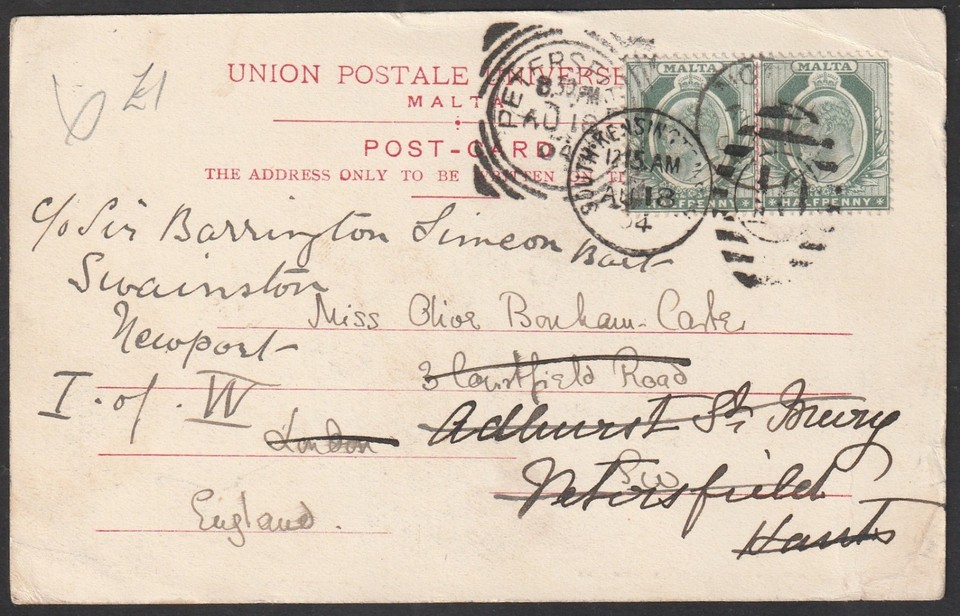 £1
UNION POSTALE UNIVERSE
MALTA
POST-CARD
THE ADDRESS ONLY TO BE WRITTEN ON
MALTA
MALTA
HALFPENNY
HALFPENNY
PETERSF
8.30 PM
AU 18
04
SOUTH-KENSINGT
12.15 AM
AU 18
04
c/o Sir Barrington Simeon Bart
Swainston
Newport
I. of. W
Miss Olive Bonham-Carter
3 Courtfield Road
London
S.W
England.
Adhurst St Mary
Petersfield
Hants